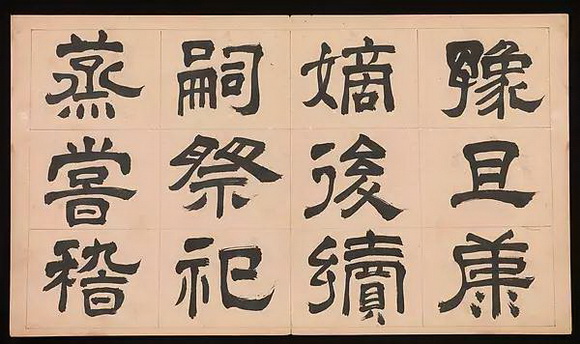 豫且康
嫡後續
嗣祭祀
蒸嘗稽